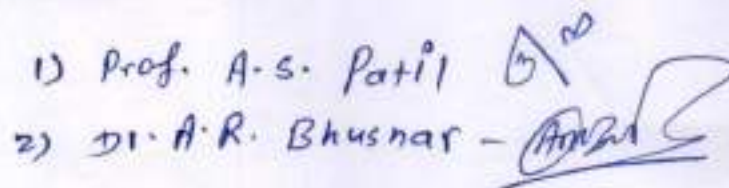 1) Prof. A.S. Patil
2) Dr. A.R. Bhusnar -